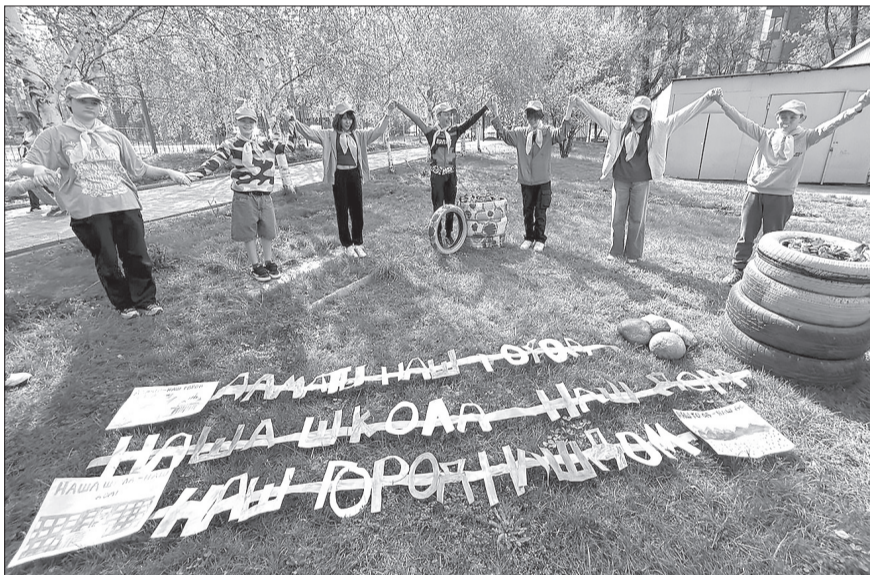 НАШ ГОРОД
АЛМАТЫ НАШ ГОРОД
НАША ШКОЛА НАШ ДОМ
НАШ ГОРОД НАШ ДОМ
НАША